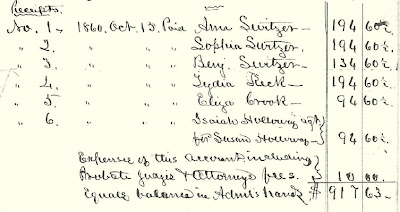 Receipts.
No. 1 - 1860. Oct. 13. Paid Ama Switzer - 194 60½
" 2. " " " " Sophia Switzer, 194 60½
" 3. " " " " Benj. Switzer - 134 60½
" 4. " " " " Lydia Fleck - 194 60½
" 5 " " " " Eliza Crook - 94 60½
" 6. " " " " Isaiah Holloway agt
for Susan Holloway - 94 60½
Expenses of this account including
Probate Judges & Attorneys fees. 10 00.
Equals balance in Admr's hands $ 917 63-